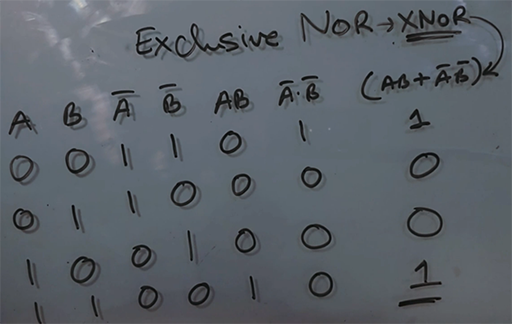 Exclusive NOR → XNOR
A B A̅ B̅ AB A̅·B̅ (AB + A̅B̅)
0 0 1 1 0 1 1
0 1 1 0 0 0 0
1 0 0 1 0 0 0
1 1 0 0 1 0 1